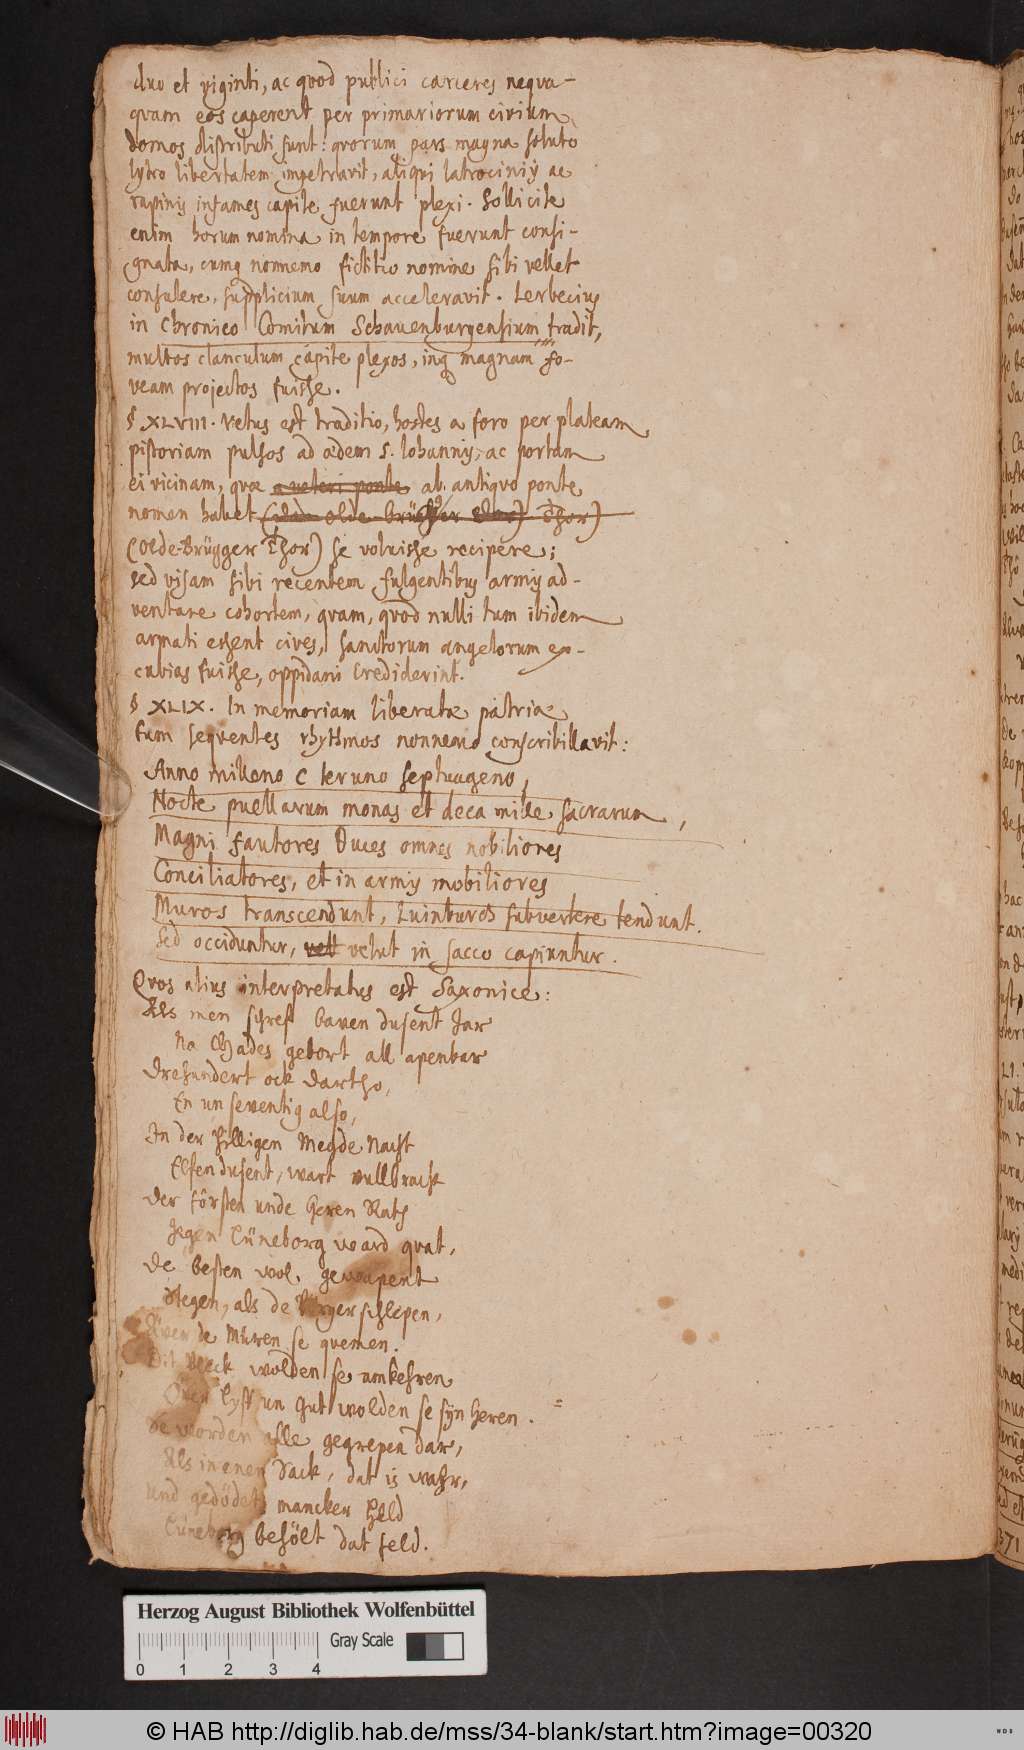 duo et viginti, ac quod publici carceres nequa-
quam eos caperent per primariorum civium
domos distributi sunt: quorum pars magna soluto
lytro libertatem impetravit, aliqui latrociniis ac
rapinis infames capite fuerunt plexi. Sollicite
enim horum nomina in tempore fuerunt consi-
gnata, cumq nonnemo fictitio nomine sibi vellet
consulere, supplicium suum acceleravit. Lerbecius
in Chronico Comitum Schauenburgensium tradit,
multos clanculum capite plexos, inq magnam fo-
veam projectos fuisse.
§ XLVIII. Vetus est traditio, hostes a foro per plateam
pistoriam pulsos ad ædem S. Iohannis, ac portam
ei vicinam, quæ a veteri ponte ab antiquo ponte
nomen habet Thor)
(Olde-Brügger Thor) se voluisse recipere;
sed visam sibi recentem fulgentibus armis ad-
ventare cohortem, quam, quod nulli tum ibidem
armati essent cives, sanctorum angelorum ex-
cubias fuisse, oppidani crediderint.
§ XLIX. In memoriam liberatæ patriæ
tum seqventes rhythmos nonnemo conscribillavit:
Anno milleno C ter uno septuageno,
Nocte puellarum monas et deca mille sacrarum,
Magni fautores Duces omnes nobiliores
Conciliatores, et in armis mobiliores
Muros transcendunt, Luinburch subvertere tendunt.
Sed occiduntur, velut in sacco capiuntur.
Qvos alius interpretatus est Saxonice:
Als men schref baven dusent Jar
Na Chades gebort all apenbar
Drehundert ock dartho,
En un seventig also,
In der hilligen Megde Nacht
Elfen dusent, wart vullbracht
Der försten unde Heren Rath
Jegen Lüneborg ward quat,
De besten wol. gewapent
Stegen, als de Börger schlepen,
Äver de Müren se quemen.
Dit Bleck wolden se umkehren
Över Lyff un Gut wolden se syn Heren. =
De worden alle gegrepen dar,
Als in enen Sack, dat is wahr,
Und gedödet mancker Held
Lüneborg behölt dat feld.
Herzog August Bibliothek Wolfenbüttel
Gray Scale
0 1 2 3 4
© HAB http://diglib.hab.de/mss/34-blank/start.htm?image=00320